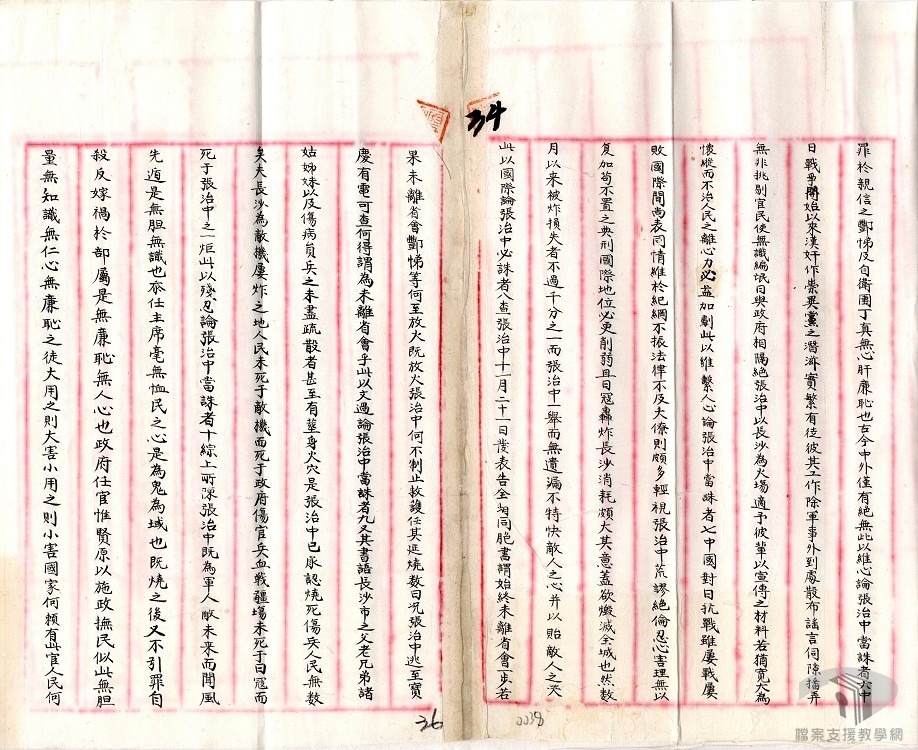 34
罪於親信之酆悌及自衛團丁真無心肝廉恥也古今中外僅有絕無此以維心論張治中當誅者六中
日戰爭開始以來漢奸作祟異黨之潛滋實繁有徒彼其工作除軍事外到處散布謠言伺隙播弄
無非挑剔官民使無識編氓日與政府相隔絕張治中以長沙為火場適予彼輩以宣傳之材料若猶寬大為
懷縱而不治人民之離心力必益加劇此以維繫人心論張治中當誅者七中國對日抗戰雖屢戰屢
敗國際間尚表同情維於紀綱不振法律不及大僚則頗多輕視張治中荒謬絕倫忍心害理無以
复加苟不置之典刑國際地位必更削弱且日寇轟炸長沙消耗頗大其意蓋欲燬滅全城也然數
月以來被炸損失者不過千分之一而張治中一舉而無遺漏不特快敵人之心并以貽敵人之笑
此以國際論張治中必誅者八查張治中十一月二十一日發表告全湘同胞書謂始終未離省會一步若
果未離省會酆悌等何至放火既放火張治中何不制止救護任其延燒數日況張治中逃至寶
慶有電可查何得謂為未離省會乎此以文過論張治中當誅者九又其書語長沙市之父老兄弟諸
姑姊妹以及傷病員兵之未盡疏散者甚至有葬身火穴是張治中已承認燒死傷兵人民無數
矣夫長沙為敵機屢炸之地人民未死于敵機而死于政府傷官兵血戰疆場未死于日寇而
死于張治中之一炬此以殘忍論張治中當誅者十綜上所陳張治中既為軍人敵未來而聞風
先逃是無胆無識也忝任主席毫無恤民之心是為鬼為域也既燒之後又不引罪自
殺反嫁禍於部屬是無廉恥無人心也政府任官惟賢原以施政撫民似此無胆
量無知識無仁心無廉恥之徒大用之則大害小用之則小害國家何賴有此官人民何
0038
36
檔案支援教學網